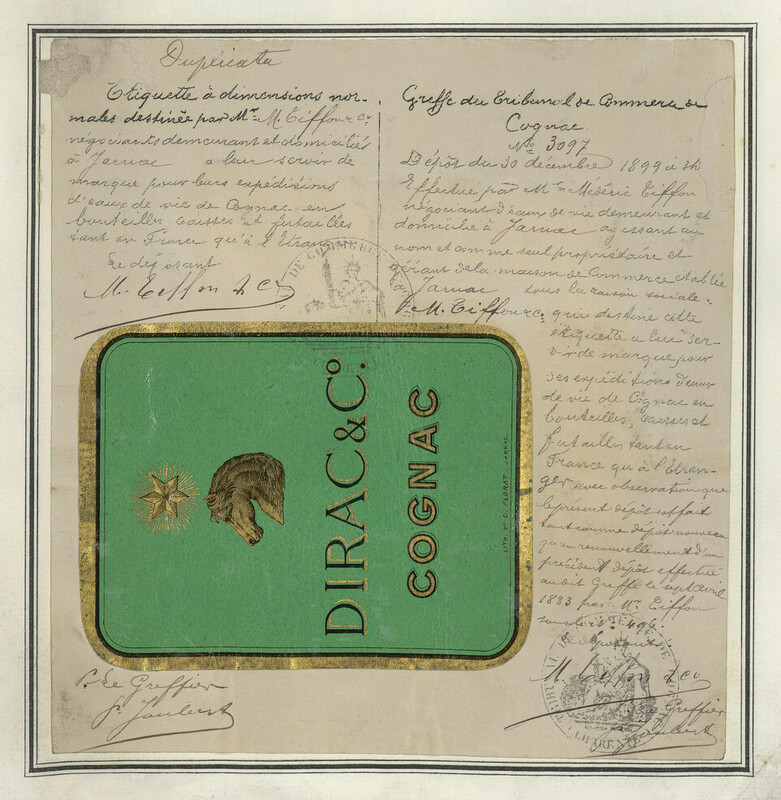 Duplicata
Etiquette à dimensions nor-
males destinée par Mrs M. Tiffon & Co
négociants demeurant et domiciliés
à Jarnac a leur servir de
marque pour leurs expéditions
d'eaux de vie de Cognac en
bouteilles caisses et futailles
tant en France qu'à l'Etranger
Le déposant
M. Tiffon & Co
Greffe du Tribunal de Commerce de
Cognac
No 3097
Dépôt du 30 décembre 1899 à 3h
Effectué par Mr Médéric Tiffon
négociant d'eaux de vie demeurant et
domicilié à Jarnac agissant au
nom et comme seul propriétaire et
gérant de la maison de Commerce établie
Jarnac sous la raison sociale:
M. Tiffon & Co qui destine cette
étiquette a leur ser-
vir de marque pour
ses expéditions d'eaux
de vie de Cognac en
bouteilles, caisses et
futailles tant en
France qu'à l'étran-
ger avec observation que
le présent dépôt est fait
tant comme dépôt nouveau
qu'en renouvellement d'un
précédent dépôt effectué
au dit Greffe le sept avril
1883 par Mr Tiffon
sous le no 496.
Le déposant
M. Tiffon & Co
Le Greffier
Joubert
DIRAC & Co.
COGNAC
LITH. ET G. FLORAT JARNAC
P. Le Greffier
P. Joubert
DE COMMERCE DE
TRIBUNAL DE COMMERCE DE
CHARENTE